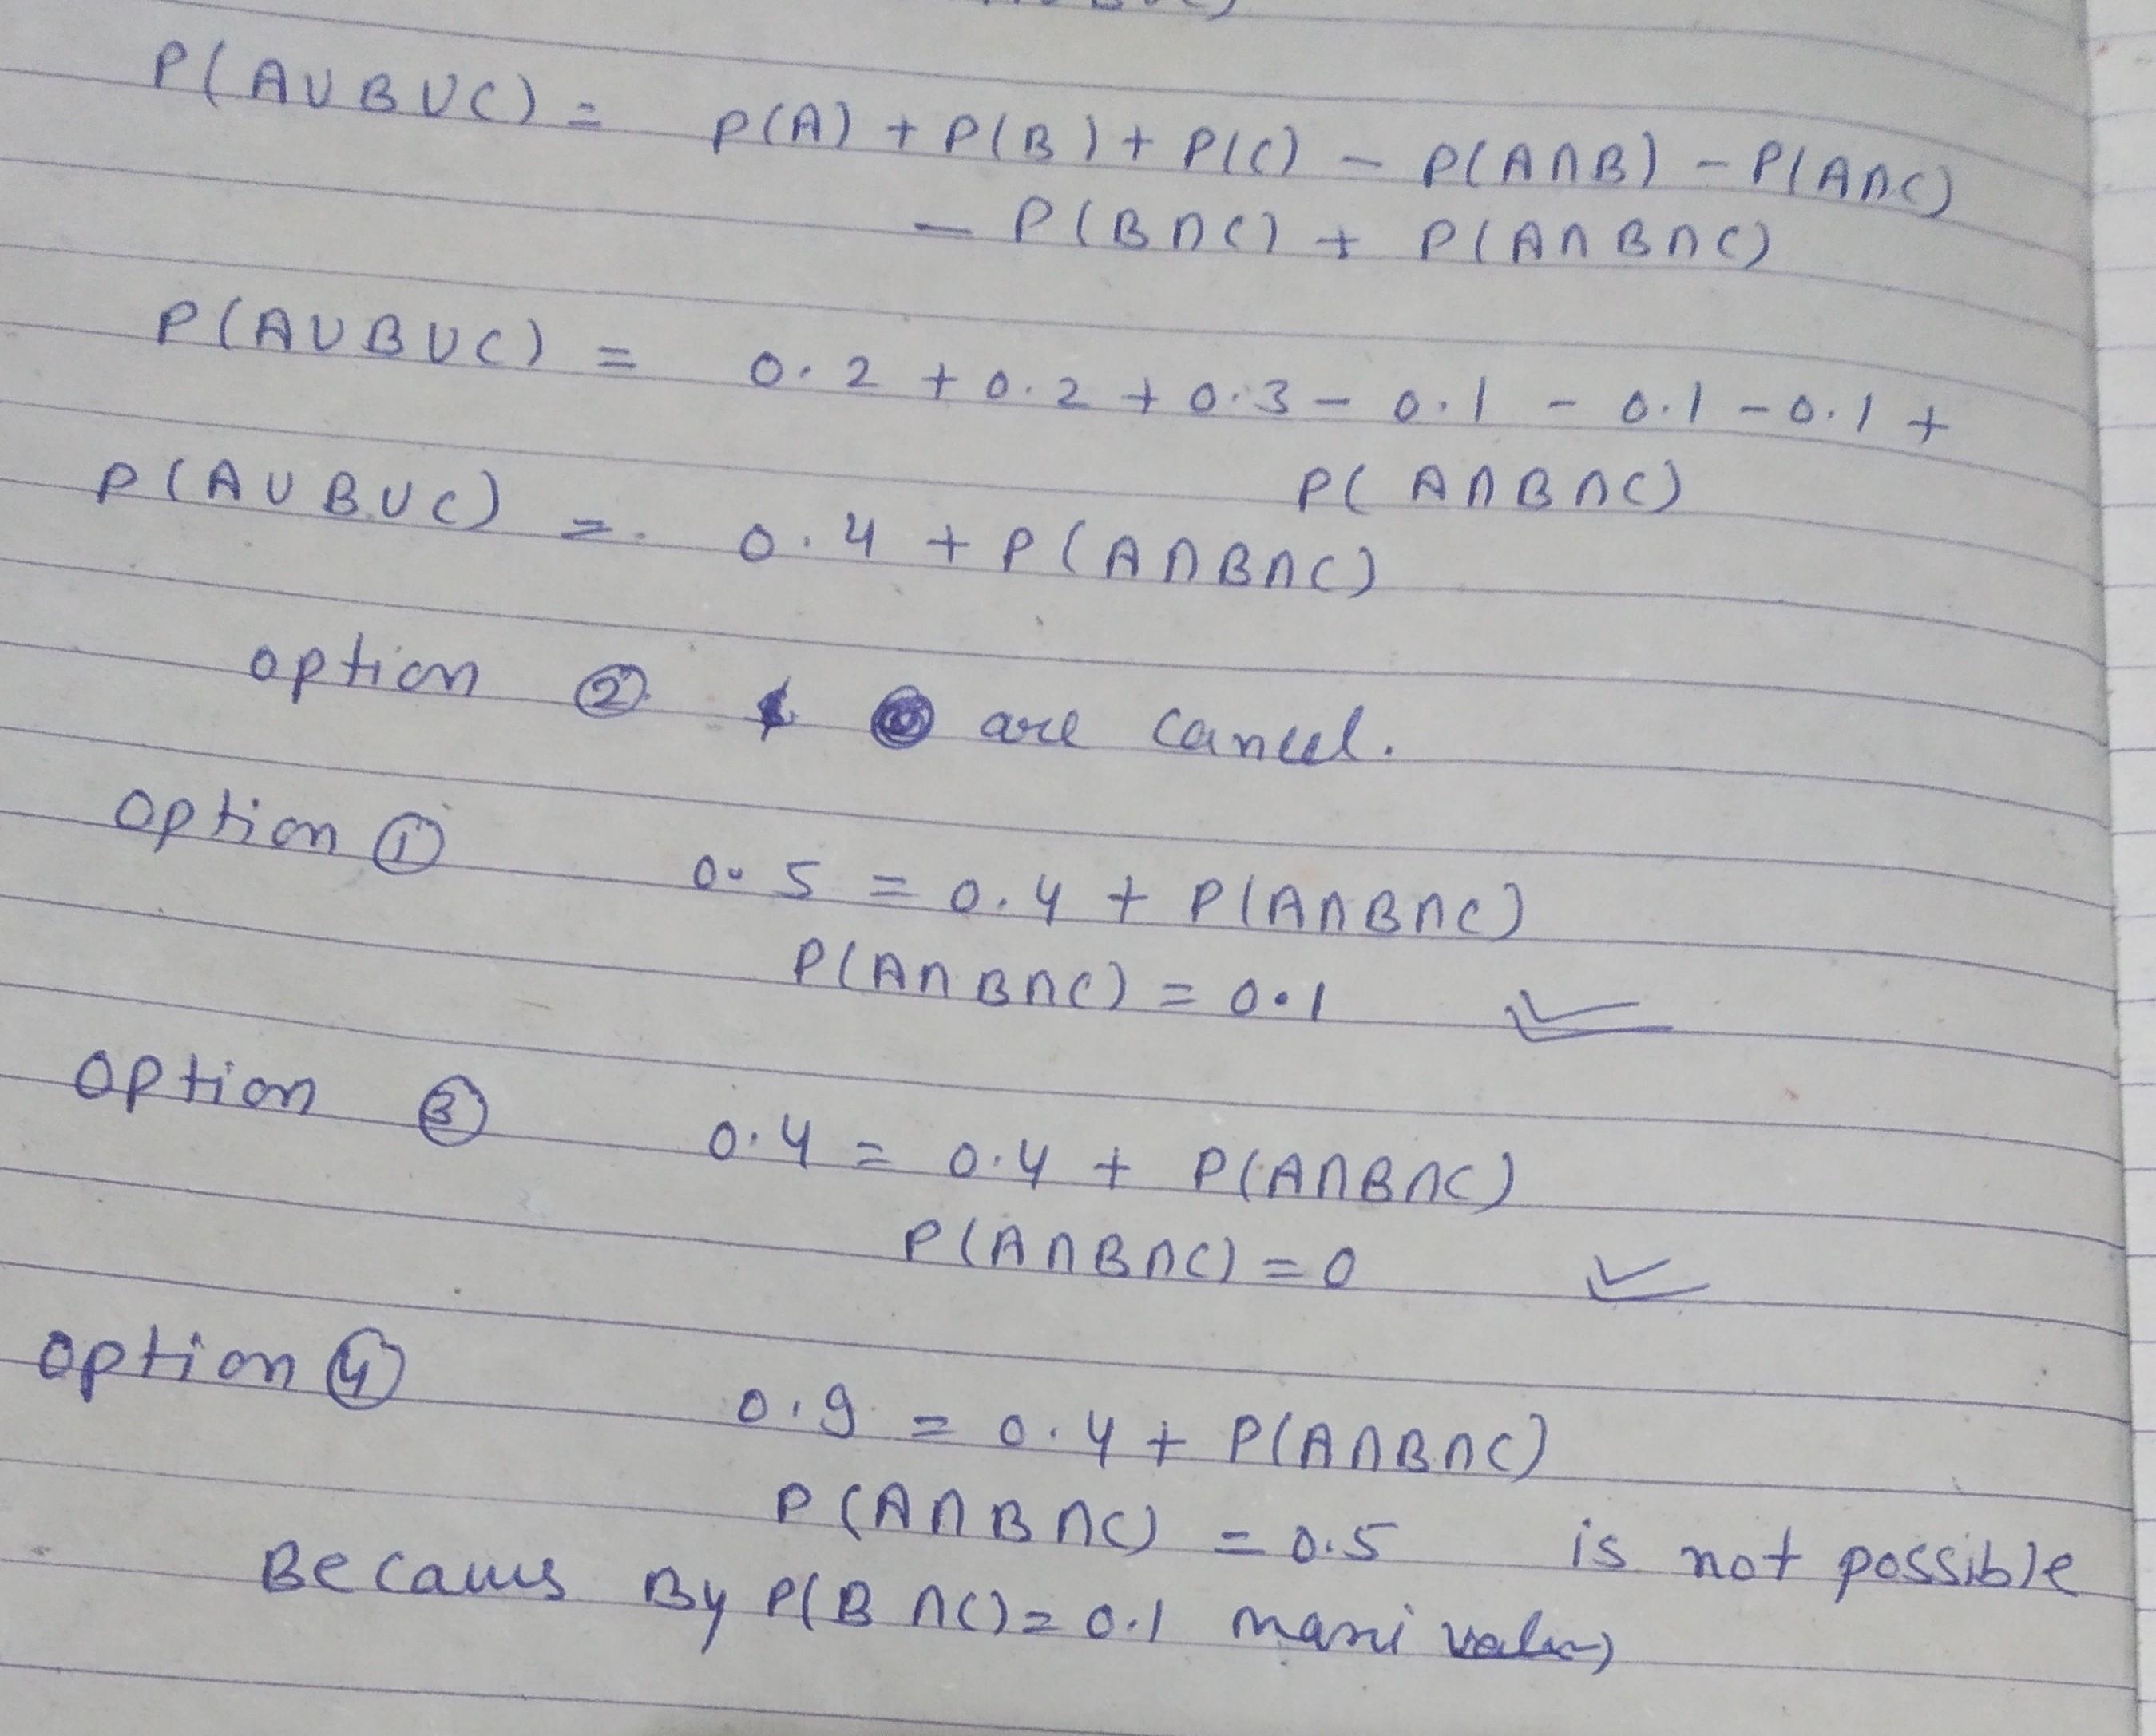 P(AUBUC) = P(A) + P(B) + P(C) - P(A∩B) - P(A∩C)
- P(B∩C) + P(A∩B∩C)
P(AUBUC) = 0.2 + 0.2 + 0.3 - 0.1 - 0.1 - 0.1 +
P(A∩B∩C)
P(AUBUC) = 0.4 + P(A∩B∩C)
option ② are cancel.
option ①
0.5 = 0.4 + P(A∩B∩C)
P(A∩B∩C) = 0.1 ✓
option ③
0.4 = 0.4 + P(A∩B∩C)
P(A∩B∩C) = 0 ✓
option ④
0.9 = 0.4 + P(A∩B∩C)
P(A∩B∩C) = 0.5 is not possible
Becaus By P(B∩C) = 0.1 maxi